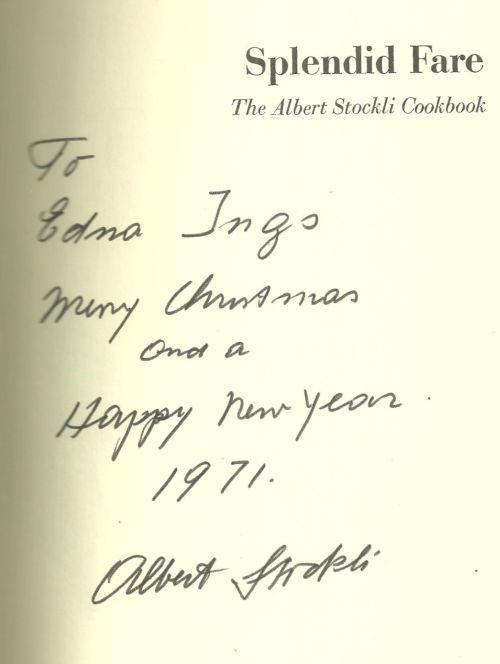 Splendid Fare
The Albert Stockli Cookbook
To
Edna Ings
Merry Christmas
and a
Happy New Year
1971.
Albert Stockli